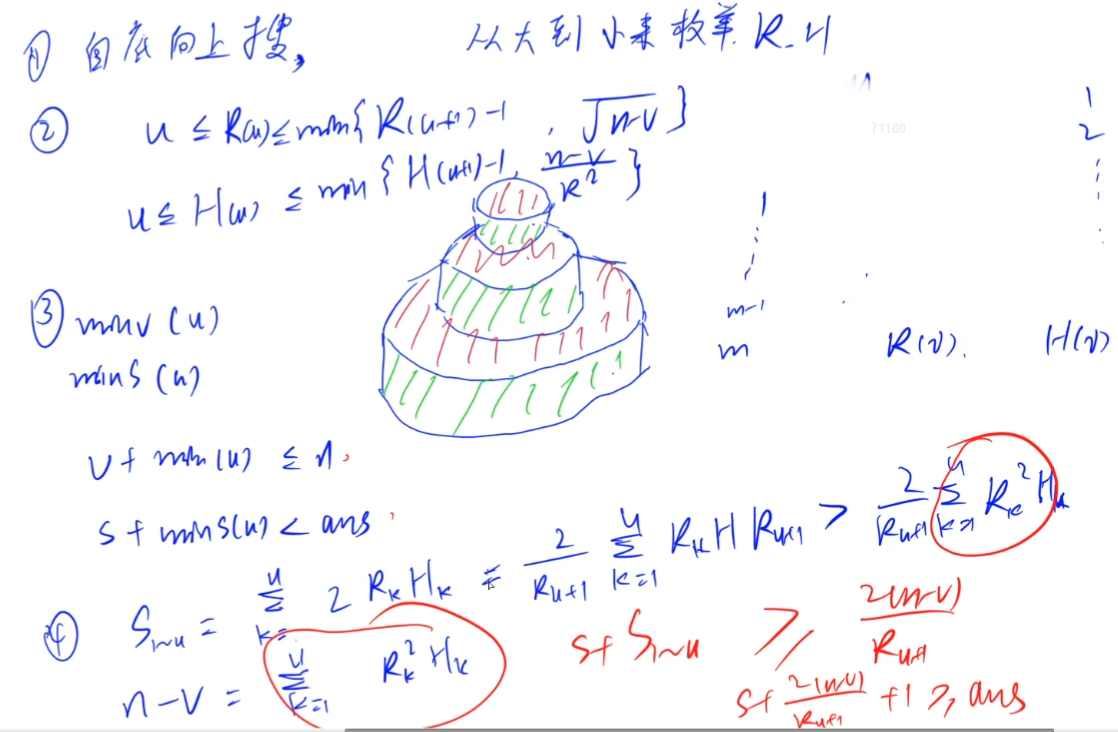 ① 自底向上搜, 从大到小来枚举 R.H
② u ≤ R(u) ≤ min{R(u+1)-1, √n-v}
u ≤ H(u) ≤ min{H(u+1)-1, n-v/R²}
71180
1
2
1
m-1
m
R(v). H(v)
③ minv(u)
mins(u)
v+min(u) ≤ n.
s+mins(u) < ans
④ S₁~u = Σ_{k=1}^{u} 2 R_k H_k = 2/R_{u+1} Σ_{k=1}^{u} R_k H R_{u+1} > 2/R_{u+1} Σ_{k=1}^{u} R_k² H_k
n-v = Σ_{k=1}^{u} R_k² H_k
s+S₁~u ≥ 2(n-v)/R_{u+1}
s+ 2(n-v)/R_{u+1} +1 ≥ ans